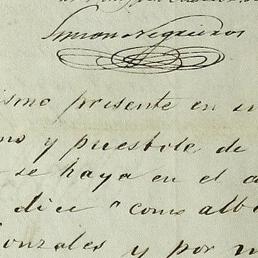 Simon Negreiros
ismo presente en
mo y puestole de
se haya en el
dice "como alb
Gonzales y por m